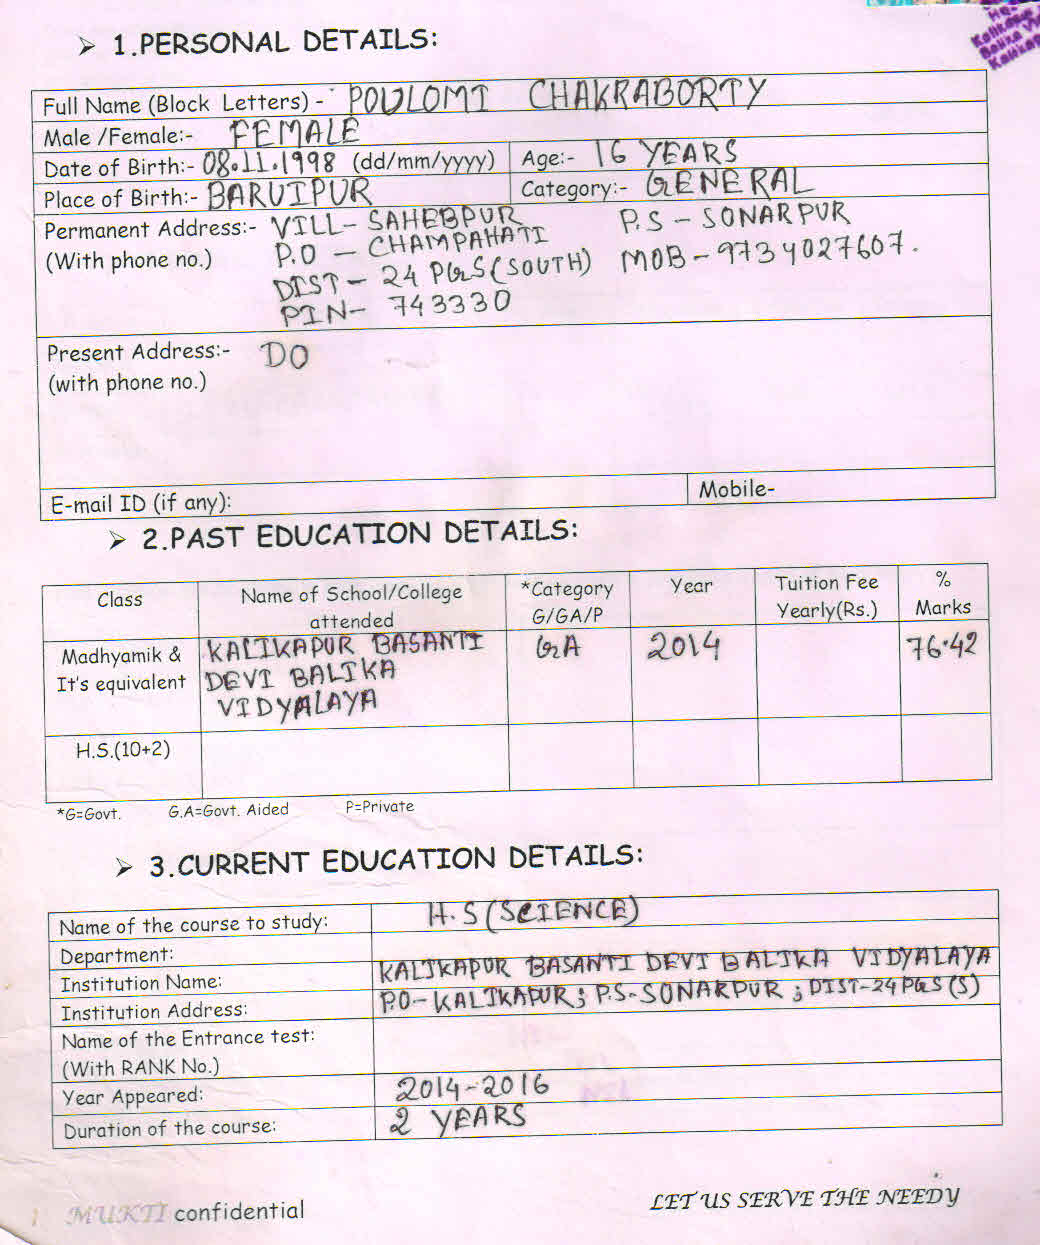 ➢ 1.PERSONAL DETAILS:
Full Name (Block Letters) - POULOMI CHAKRABORTY
Male /Female:- FEMALE
Date of Birth:- 08.11.1998 (dd/mm/yyyy) Age:- 16 YEARS
Place of Birth:- BARUIPUR Category:- GENERAL
Permanent Address:- VILL- SAHEBPUR P.S - SONARPUR
(With phone no.) P.O - CHAMPAHATI MOB - 9734027607.
DIST - 24 PGS (SOUTH)
PIN- 743330
Present Address:- DO
(with phone no.)
E-mail ID (if any): Mobile-
➢ 2.PAST EDUCATION DETAILS:
Class Name of School/College attended *Category G/GA/P Year Tuition Fee Yearly(Rs.) % Marks
Madhyamik & KALIKAPUR BASANTI GA 2014 76.42
It's equivalent DEVI BALIKA
VIDYALAYA
H.S.(10+2)
*G=Govt. G.A=Govt. Aided P=Private
➢ 3.CURRENT EDUCATION DETAILS:
Name of the course to study: H.S (SCIENCE)
Department:
Institution Name: KALIKAPUR BASANTI DEVI BALIKA VIDYALAYA
Institution Address: P.O- KALIKAPUR; P.S.- SONARPUR; DIST-24 PGS (S)
Name of the Entrance test:
(With RANK No.)
Year Appeared: 2014-2016
Duration of the course: 2 YEARS
MUKTI confidential LET US SERVE THE NEEDY